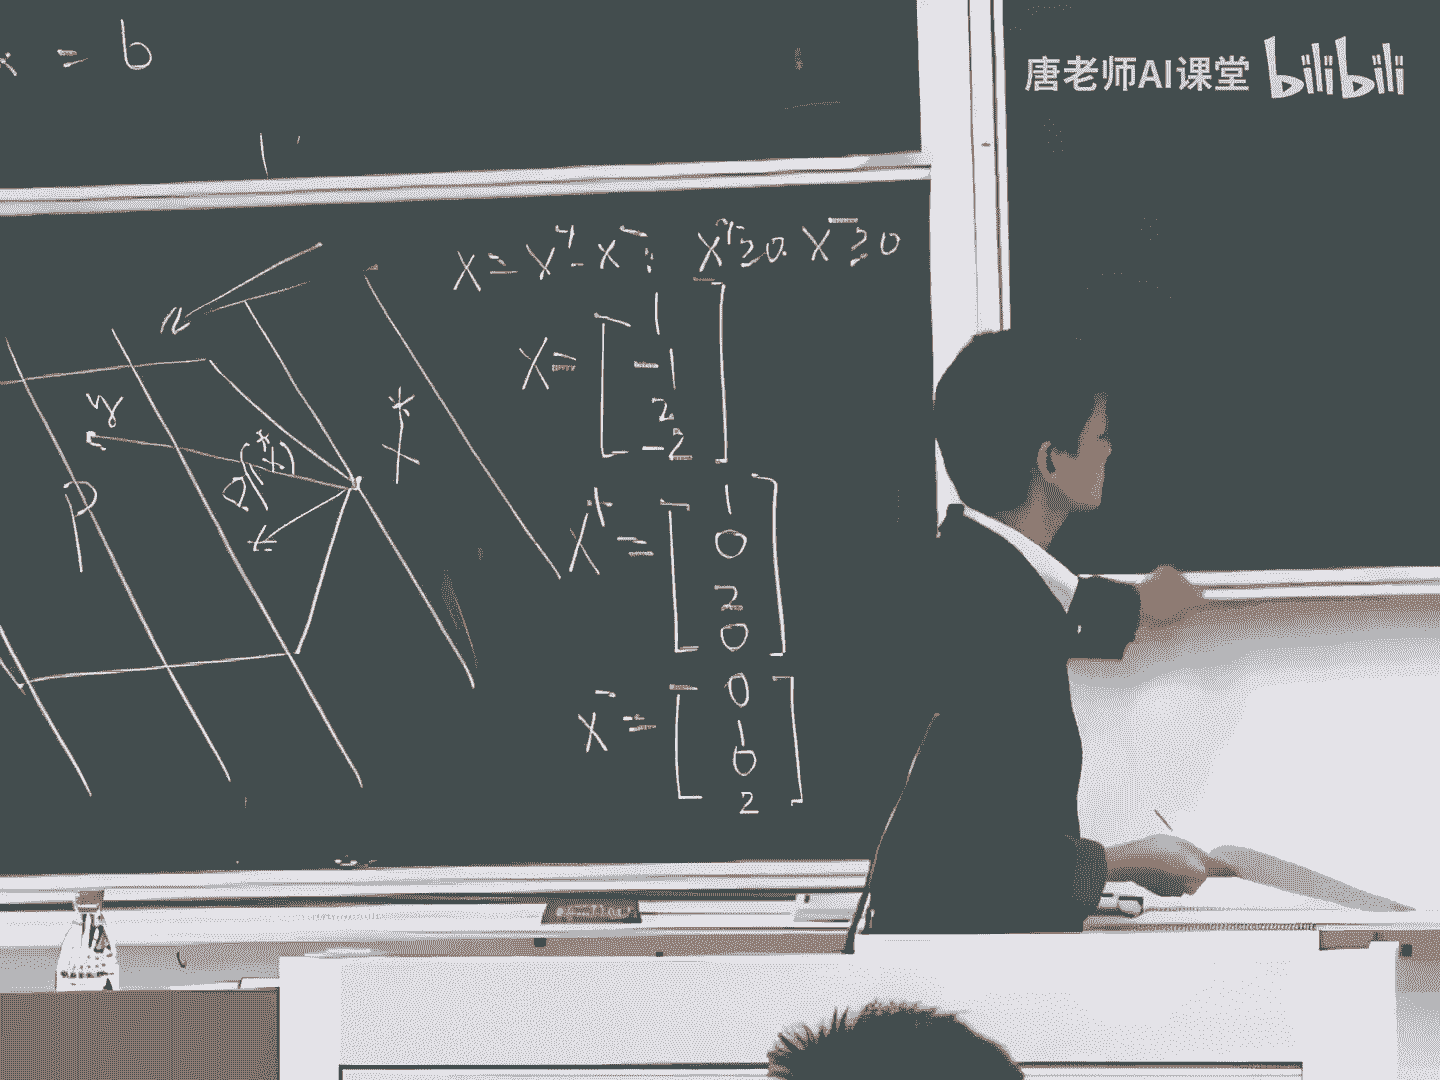 x = b
唐老师AI课堂 bilibili
x = x⁺ - x⁻ ; x⁺ ≥ 0. x⁻ ≥ 0
x = [ 1
-1
2
-2 ]
x⁺ = [ 1
0
2
0 ]
x⁻ = [ 0
1
0
2 ]
y
P
x*